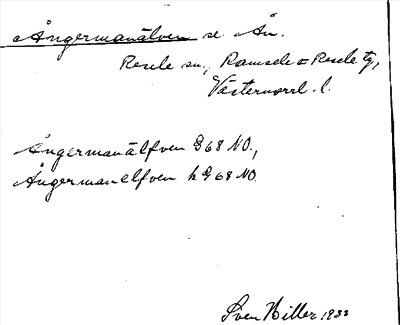 Ångermanälven se Ån.
Resele sn., Ramsele o Resele tg,
Västernorrl. l.
Ångermanälfven G68 NO.,
Ångermanelfven h G68 NO.
Sven Hiller 1933